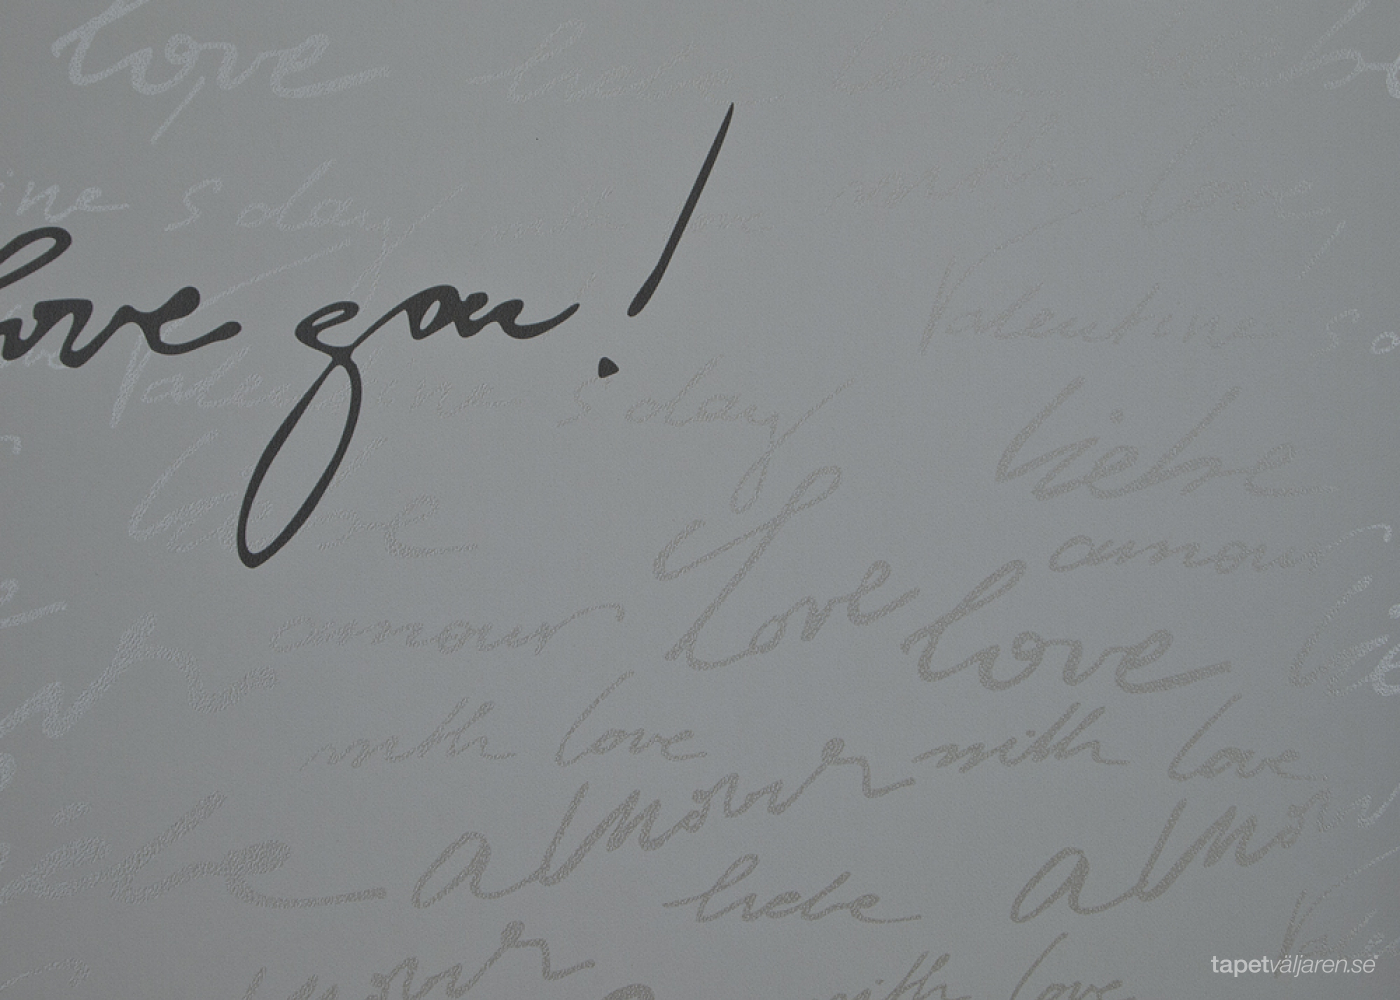 love liebe
with love
ine s day
love you!
Valentine s
Valentine s day
liebe
amour
love
amour love
with love with love
amour
liebe amo
amour
with love
tapetväljaren.se